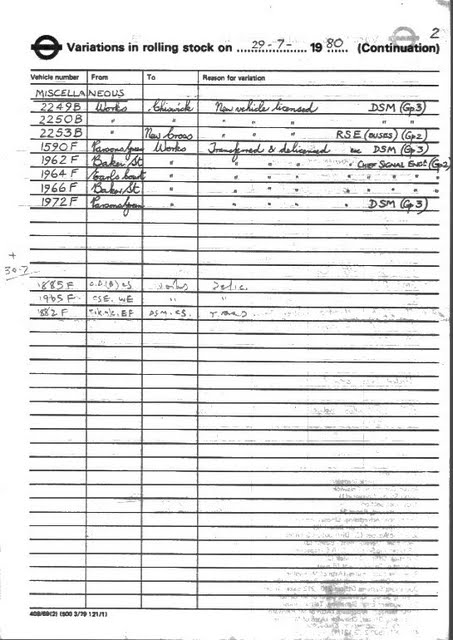 2
Variations in rolling stock on 29-7- 1980 (Continuation)
Vehicle number From To Reason for variation
MISCELLANEOUS
2249B Works Chiswick New vehicle licensed DSM (Gp3)
2250B " " " " " " "
2253B " New Cross " " " RSE (BUSES) (Gp2)
1590F Parsons Green Works Transferred & delicensed DSM (Gp3)
1962F Baker St " " " " CHIEF SIGNAL ENG. (Gp2)
1964F Earls Court " " " " " " "
1966F Baker St " " " " " " "
1972F Parsons Green " " " " DSM (Gp3)
+
30-7
1885F Works Delic.
1965F CSE. WE " "
1882F
408/69(2) (500 3/79 121/1)